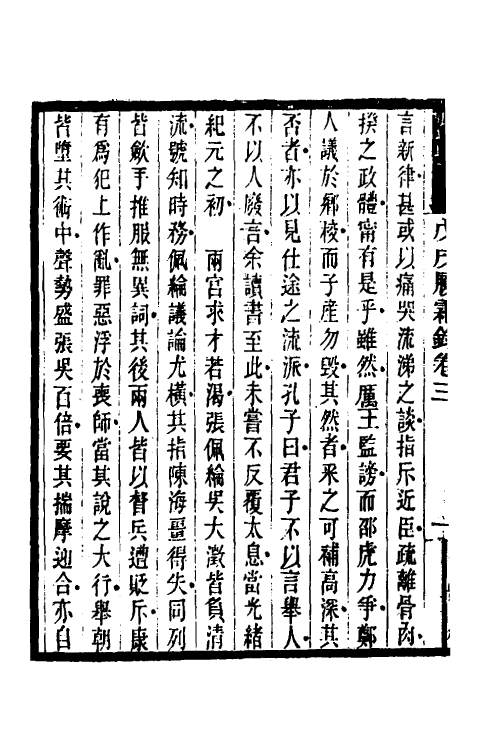 戊戌履霜錄卷三
言新律甚或以痛哭流涕之談指斥近臣疏離骨肉
揆之政體甯有是乎雖然厲王監謗而邵虎力爭鄭
人議於鄉校而子產勿毀其然者采之可補高深其
否者亦以見仕途之流派孔子曰君子不以言舉人
不以人廢言余讀書至此未嘗不反覆太息當光緒
紀元之初　兩宮求才若渴張佩綸吳大澂皆負清
流號知時務佩綸議論尤橫其指陳海畺得失同列
皆歛手推服無異詞其後兩人皆以督兵遭貶斥康
有為犯上作亂罪惡浮於喪師當其說之大行舉朝
皆墮其術中聲勢盛張吳百倍要其揣摩迎合亦自